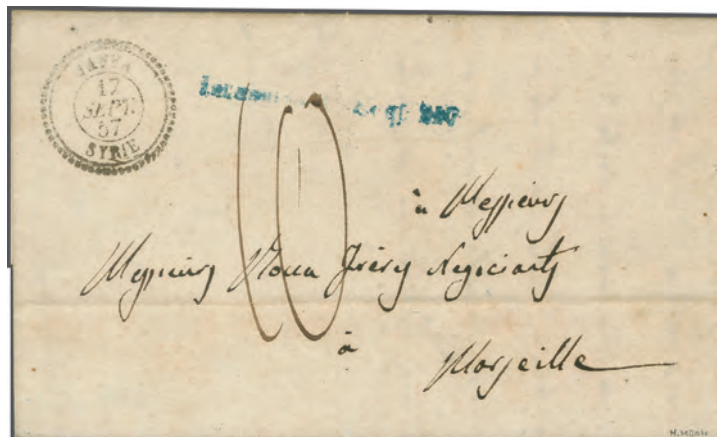 JAFFA
17
SEPT.
57
SYRIE
10
à Messieurs
Messieurs Rocca Frères Negociants
à
Marseille